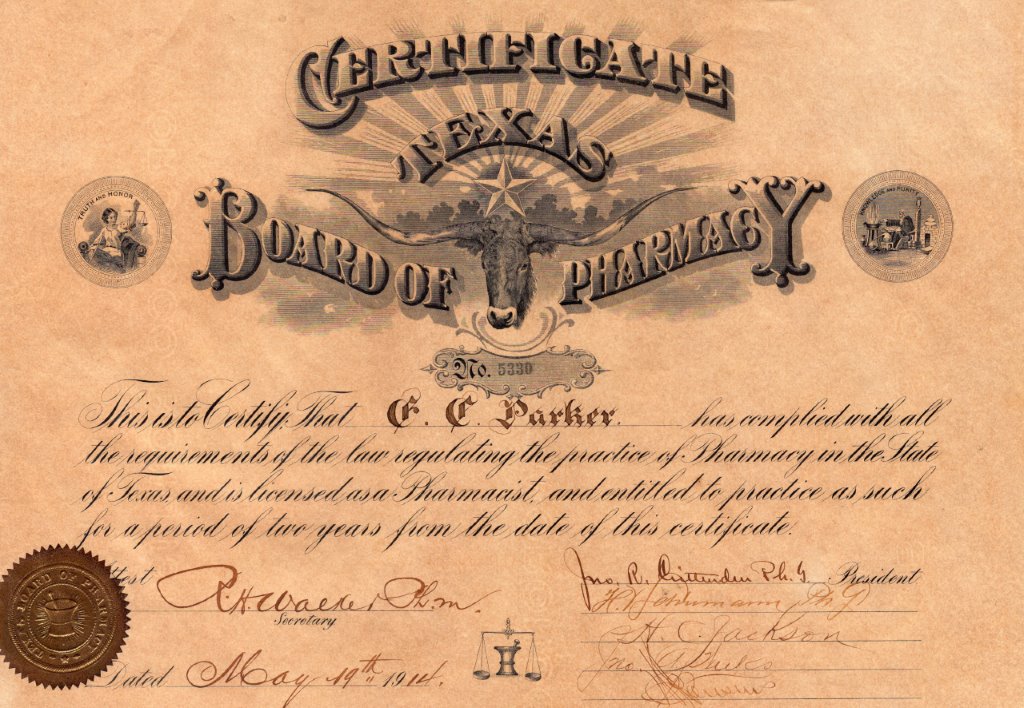 CERTIFICATE
TEXAS
BOARD OF PHARMACY
TRUTH AND HONOR
KNOWLEDGE AND PURITY
No. 5330
This is to Certify, That E. C. Parker. has complied with all
the requirements of the law regulating the practice of Pharmacy in the State
of Texas, and is licensed as a Pharmacist, and entitled to practice as such
for a period of two years from the date of this certificate.
Attest
R. H. Walker Ph. M.
Secretary
Jno. R. Crittenden Ph. G. President
Ph G
H. C. Jackson
Jno. A. Weeks
TEXAS BOARD OF PHARMACY
Dated May 19th 1914.